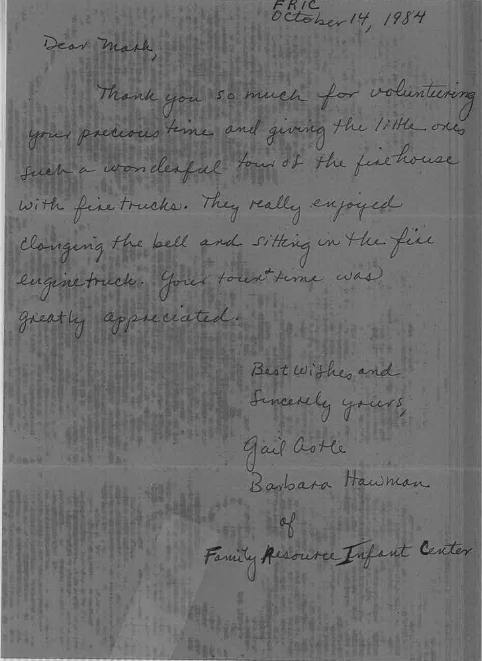 FRIC
October 14, 1984
Dear Mark,
Thank you so much for volunteering
your precious time and giving the little ones
such a wonderful tour of the firehouse
with fire trucks. They really enjoyed
clanging the bell and sitting in the fire
engine truck. Your tour + time was
greatly appreciated.
Best Wishes and
Sincerely yours,
Gail Astle
Barbara Hawman
of
Family Resource Infant Center